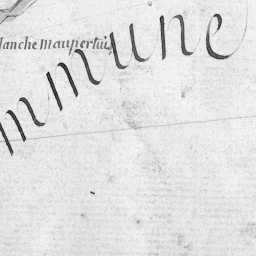 lanche Maupertui
mmune